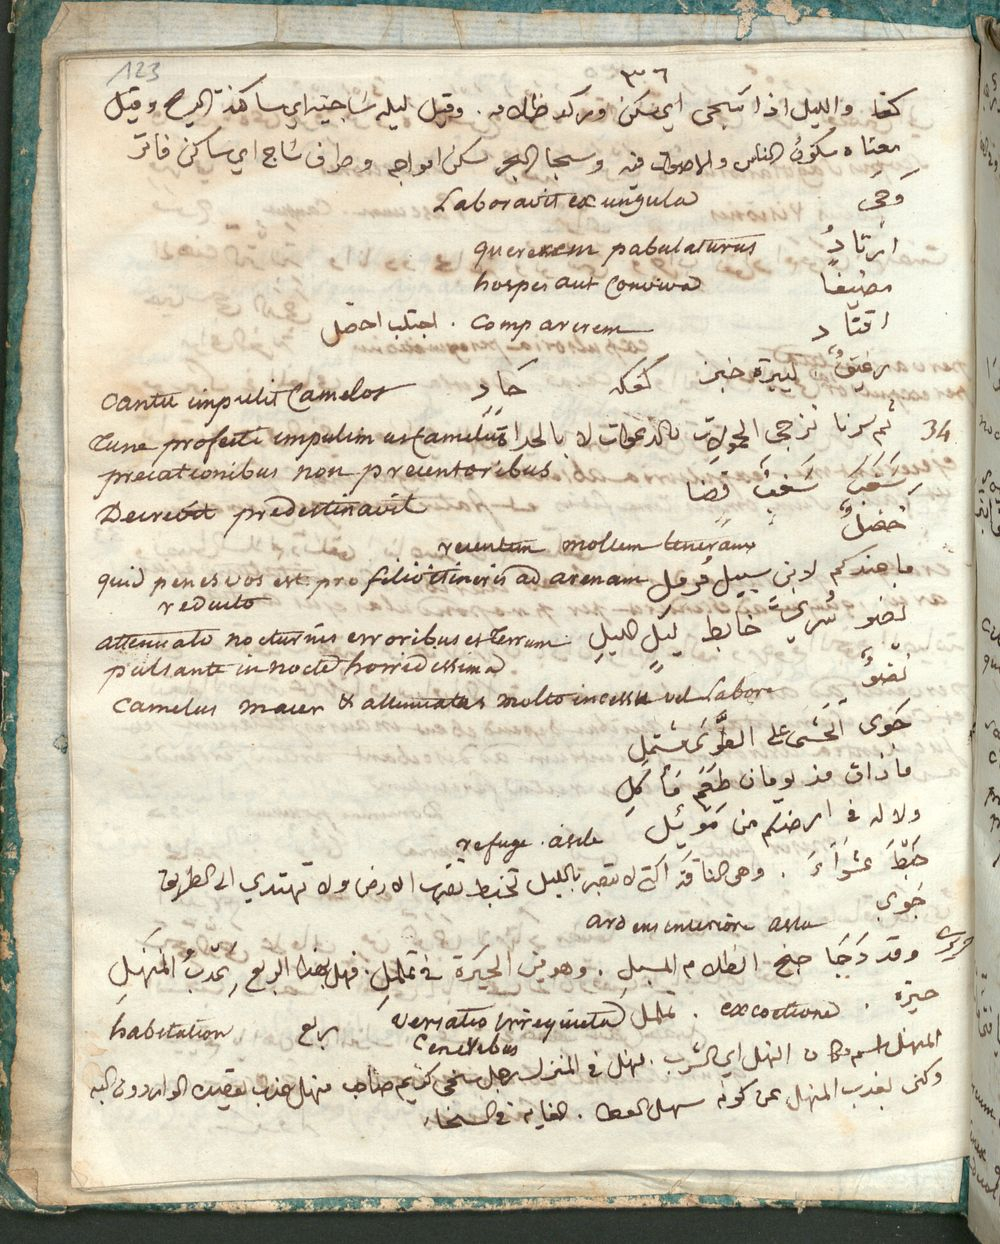 123
٣٠٦
كقا والليل اذا سجى اي سكن وركد ظلامه . وقيل ليله ساجيه اي ساكنة الريح وقيل
معناه سكون الناس والاصوات فيه وسجا البحر سكن امواجه وطرف ساج اي ساكن فاتر
وَجَى Laboravit ex ungula
ارتادُ quererem pabulaturus
مضيفًا hospes aut Conviva
اقتاد compararem . اجتلب احصل
رغيفٌ كبيرة خبز كعكه حَادٍ Cantu impulit Camelos
34 ثم سرنا نزجى الحمولات بالدعوات لا بالحداة Tunc profecti impulimus Camelus
precationibus non precentoribus
سَغَبَ سَغِبَ قضَا
Decrevit predestinavit
خَضِلٌ
recentem mollem teneram
ما عندكم لابن سبيل مُرمل quid penes vos est pro filio itineris ad arenam
reducto
نضو سُرىً خابط ليلٍ اليلِ attenuato nocturnis erroribus et terram
pulsante in nocte horridissima
نضوٌ
Camelus macer & attenuatus multo incessu vel Labore
جَوى الحَشى على الطَّوى مشتملِ
ما ذاق مذ يومان طعَمَ مَأكلِ
ولا له في ارضكم من مَوئِل refuge . asile
خَبْطَ عَشْوَآءَ . وهي الناقة التي لا تبصر بالليل تخبط بضرب الارض ولا تهتدي الى الطريق
جَوِي
ardens interiore astu
وقد دَجَا جنح الظلام المسبل . وهو من الحيرة في تململ . فهل بهذا الربع عذبُ المنهلِ
حيرة . excoctione . تململ versatio irrequieta ربع habitation
المنهل اسم مكان النهل اي الشرب . نهل في المنزل رجل سخى كريم صاحب منهل عذب يقصده الواردون اليه
وكنى بعذب المنهل عن كونه سهل العطا . الغاية في السخاء